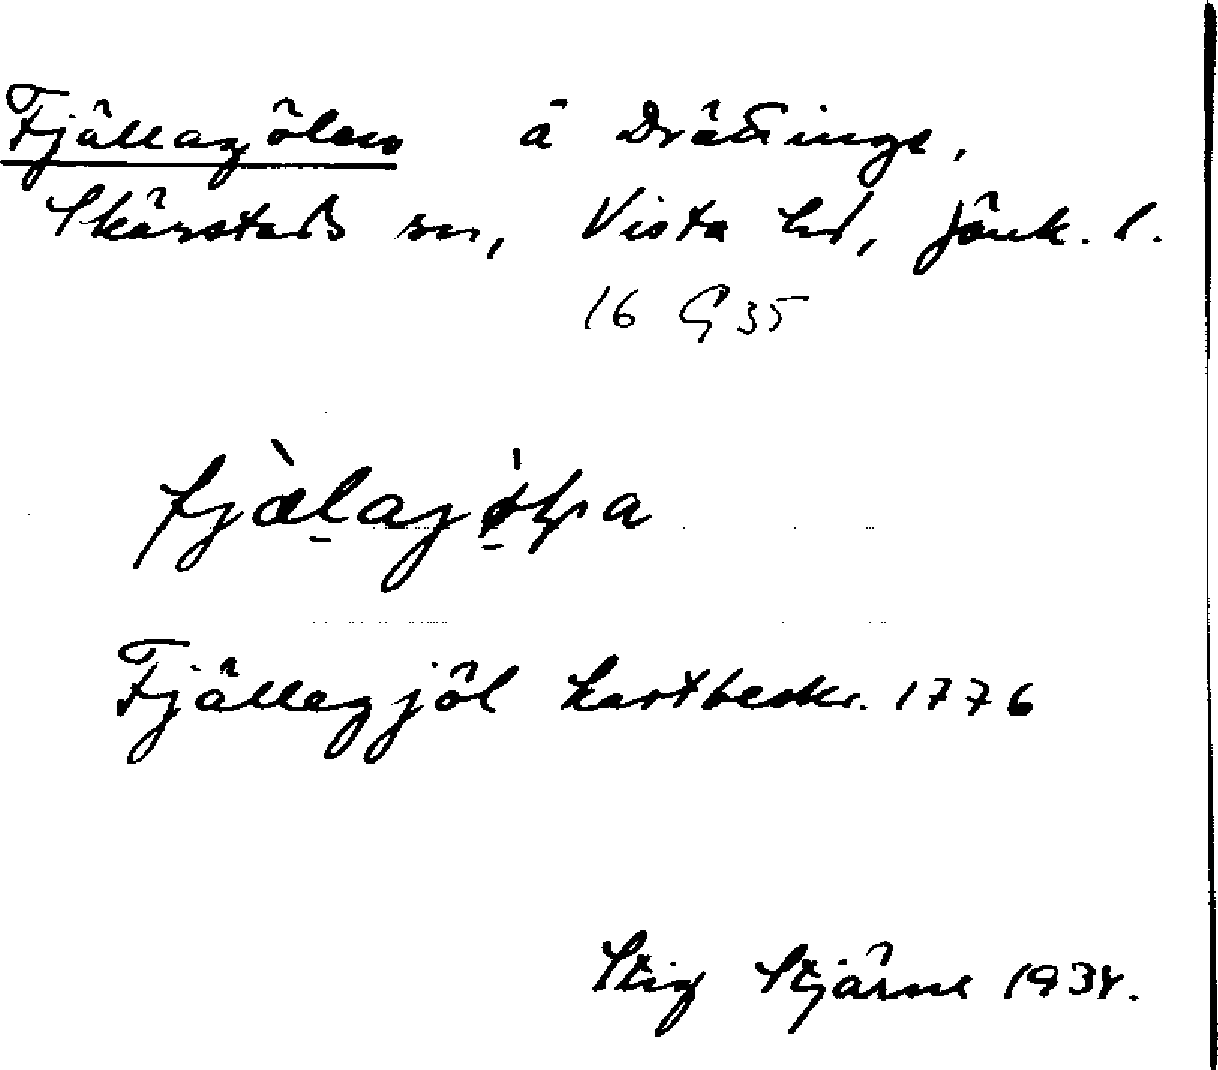 Fjällagölen å Drättinge,
Skärstads sn, Vista hd, Jönk. l.
16 G 35
Fjällagjöl kartbeskr. 1776
Stig Stjärne 1934.